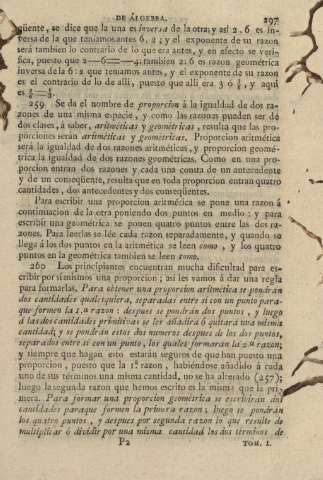 DE ÁLGEBRA. 297
güente, se dice que la una es inversa de la otra; así 2, 6 es in-
versa de la que teniamos antes 6, 2; y el exponente de su razon
será tambien lo contrario de lo que era antes, y en efecto se veri-
fica, puesto que 2—6=—4; tambien 2:6 es razon geométrica
inversa de la 6:2 que teniamos antes, y el exponente de su razon
es el contrario de lo de allí, puesto que allí era 3 ó, y aquí
es
259 Se da el nombre de proporcion á la igualdad de dos ra-
zones de una misma especie, y como las razones pueden ser de
dos clases, á saber, aritméticas y geométricas, resulta que las pro-
porciones serán aritméticas y geométricas. Proporcion aritmética
será la igualdad de dos razones aritméticas, y proporcion geomé-
trica la igualdad de dos razones geométricas. Como en una pro-
porcion entran dos razones y cada una consta de un antecedente
y de un conseqüente, resulta que en toda proporcion entran quatro
cantidades, dos antecedentes y dos conseqüentes.
Para escribir una proporcion aritmética se pone una razon á
continuacion de la otra poniendo dos puntos en medio; y para
escribir una geométrica se ponen quatro puntos entre las dos ra-
zones. Para leerlas se lée cada razon separadamente, y quando se
llega á los dos puntos en la aritmética se leen como, y los quatro
puntos en la geométrica tambien se leen como.
260 Los principiantes encuentran mucha dificultad para es-
cribir por sí mismos una proporcion; así les vamos á dar una regla
para formarlas. Para obtener una proporcion aritmética se pondrán
dos cantidades qualesquiera, separadas entre sí con un punto para-
que formen la 1.a razon: despues se pondrán dos puntos, y luego
á las dos cantidades primitivas se les añadirá ó quitará una misma
cantidad; y se pondrán estos dos números despues de los dos puntos,
separados entre sí con un punto, los quales formaran la 2.a razon;
y siempre que hagan esto estarán seguros de que han puesto una
proporcion, puesto que la 1.a razon, habiéndose añadido á cada
uno de sus términos una misma cantidad, no se ha alterado (257);
luego la segunda razon que hemos escrito es la misma que la pri-
mera. Para formar una proporcion geométrica se escribirán dos
cantidades paraque formen la primera razon; luego se pondrán
los quatro puntos, y despues por segunda razon lo que resulte de
multiplicar ó dividir por una misma cantidad los dos términos de
P2 TOM. I.